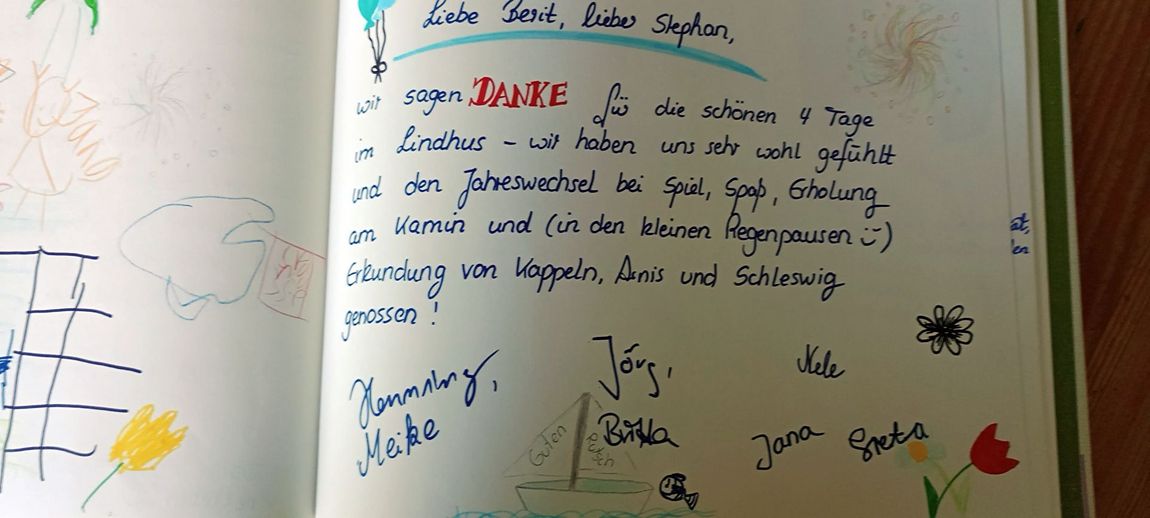 Liebe Berit, lieber Stephan,
wir sagen DANKE für die schönen 4 Tage
im Lindhus – wir haben uns sehr wohl gefühlt
und den Jahreswechsel bei Spiel, Spaß, Erholung
am Kamin und (in den kleinen Regenpausen :-)
Erkundung von Kappeln, Arnis und Schleswig
genossen!
Henning, Jörg, Nele
Meike Britta Jana Greta
Guten Rutsch